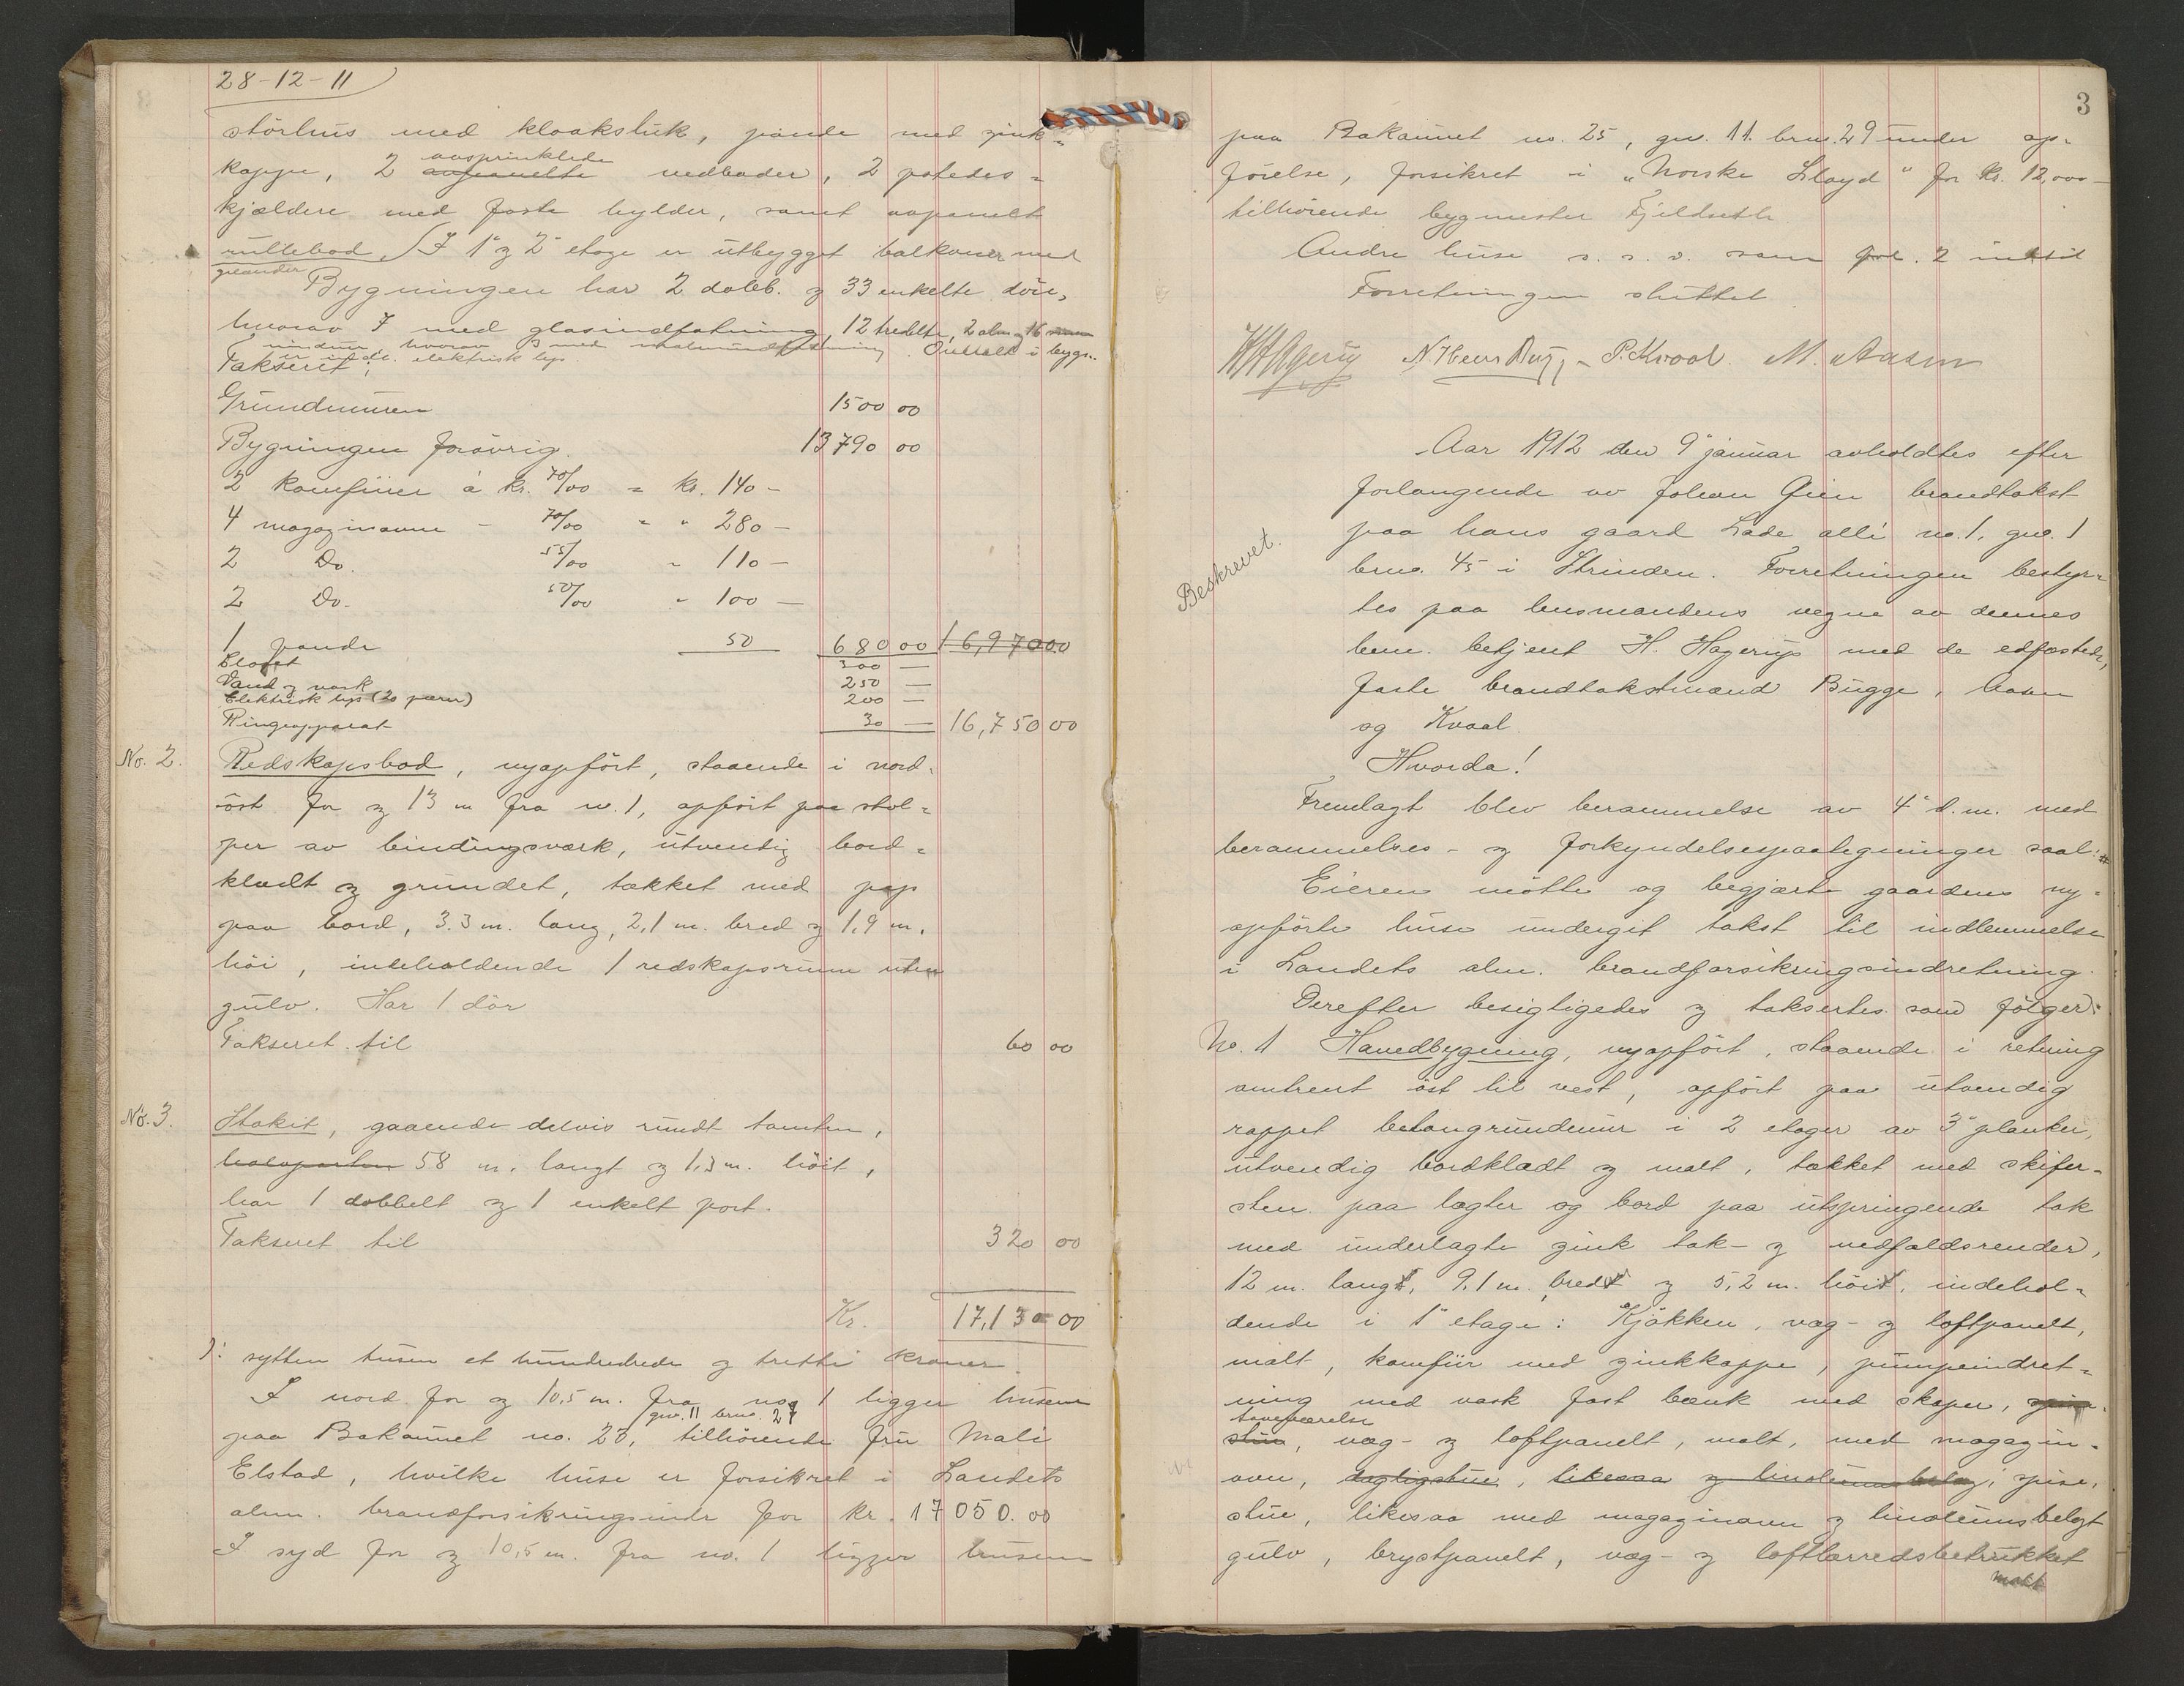 28-12-11
störhus med kloaksluk, pande med zink-
kappe, 2 aasprinklede vedboder, 2 potedes=
kjældere med faste hylder, samt aapenelt
rullebod. I 1' og 2' etage er utbygget balkoner med
Bygningen har 2 dobb. og 33 enkelte döre,
hvorav 7 med glasindfatning, 12 tredelte, 2 alm og 16
vinduer, hvorav 3 med indfatning. i bygn.
er indl. elektrisk lys.
Takseret:
Grundmuren 1500 00
Bygningen forövrig. 13790 00
2 komfurer á kr. 70/00 = kr. 140 -
4 magazinovne - 70/00 " " 280 -
2 Do. 55/00 " 110 -
2 Do. 50/00 " 100 -
1 pande 50 680 00 16,970 00
Closet 300 —
Vand og vask 250 —
Elektrisk lys (20 pærer) 200 —
Ringeapparat 30 — 16,750 00
No. 2. Redskapsbod, nyopfört, staaende i nord-
öst for og 13 m fra no. 1, opfört paa stol=
per av bindingsværk, utvendig bord=
klædt og grundet, tækket med pap
paa bord, 3.3 m. lang, 2,1 m. bred og 1,9 m.
höi, indeholdende 1 redskapsrum uten
gulv. Har 1 dör
Takseret til 60 00
No. 3. Stakit, gaaende delvis rundt tomten,
58 m. langt og 1,3 m. höit,
har 1 dobbelt og 1 enkelt port.
Takseret til 320 00
Kr. 17,130 00
ɔ: sytten tusen et hundredrede og tretti kroner.
I nord for og 10,5 m. fra no. 1 ligger husene
gno. 11 brno. 27
paa Bakaunet no. 23, tilhörende fru Mali
Elstad, hvilke huse er forsikret i Landets
alm. brandforsikringsindr for kr. 17050.00
I syd for og 10,5 m. fra no. 1 ligger husene
3
paa Bakaunet no. 25, gno. 11. brno. 29 under op-
förelse, forsikret i "Norske Lloyd" for kr. 12,000-
tilhörende bygmester Fjeldseth.
Andre huse s. s. v. som fol. 2
Forretningen sluttet.
P. Kvaal. M. Aasen
Beskrevet.
Aar 1912 den 9' januar avholdtes efter
forlangende av Johan Gien brandtakst
paa hans gaard Lade allé no. 1, gno. 1
brno. 45 i Strinden. Forretningen bestyr-
tes paa lensmandens vegne av dennes
bem. betjent H. Hagerup med de edfæstede,
faste brandtakstmænd Bugge, Aasen
og Kvaal.
Hvorda!
Fremlagt blev berammelse av 4' d.m. med
berammelses- og forkyndelsespaategninger saal:
Eieren mötte og begjærte gaardens ny-
opförte huse undergit takst til indlemmelse
i Landets alm. brandforsikringsindretning.
Derefter besigtigedes og taksertes som fölger:
No. 1 Hovedbygning, nyopfört, staaende i retning
omtrent öst til vest, opfört paa utvendig
rappet betongrundmur i 2 etager av 3" planker,
utvendig bordklædt og malt, tækket med skifer-
sten paa lægter og bord paa utspringende tak
med underlagte zink tak- og nedfaldsrender,
12 m. langt, 9,1 m. bredt og 5,2 m. höit, indehol-
dende i 1' etage: Kjökken, væg- og loftpanelt,
malt, komfur med zinkkappe, pumpeindret=
ning med vask fast bænk med skaper, spise-
soveværelse
stue, væg- og loftpanelt, malt, med magazin-
ovn, dagligstue, likesaa og linoleumsbelæg, spise-
stue, likesaa med magazinovn og linoleumsbelagt
gulv, brystpanelt, væg- og loftlærredsbetrukket
malt